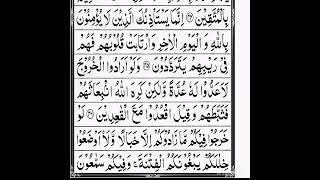 بِالْمُتَّقِيْنَ ﴿۴۴﴾ اِنَّمَا يَسْتَاْذِنُكَ الَّذِيْنَ لَا يُؤْمِنُوْنَ
بِاللّٰهِ وَ الْيَوْمِ الْاٰخِرِ وَ ارْتَابَتْ قُلُوْبُهُمْ فَهُمْ
فِيْ رَيْبِهِمْ يَتَرَدَّدُوْنَ ﴿۴۵﴾ وَ لَوْ اَرَادُوا الْخُرُوْجَ
لَاَعَدُّوْا لَهٗ عُدَّةً وَّ لٰكِنْ كَرِهَ اللّٰهُ انْۢبِعَاثَهُمْ
فَثَبَّطَهُمْ وَ قِيْلَ اقْعُدُوْا مَعَ الْقٰعِدِيْنَ ﴿۴۶﴾ لَوْ
خَرَجُوْا فِيْكُمْ مَّا زَادُوْكُمْ اِلَّا خَبَالًا وَّ لَا۟اَوْضَعُوْا
خِلٰلَكُمْ يَبْغُوْنَكُمُ الْفِتْنَةَ ۚ وَ فِيْكُمْ سَمّٰعُوْنَ